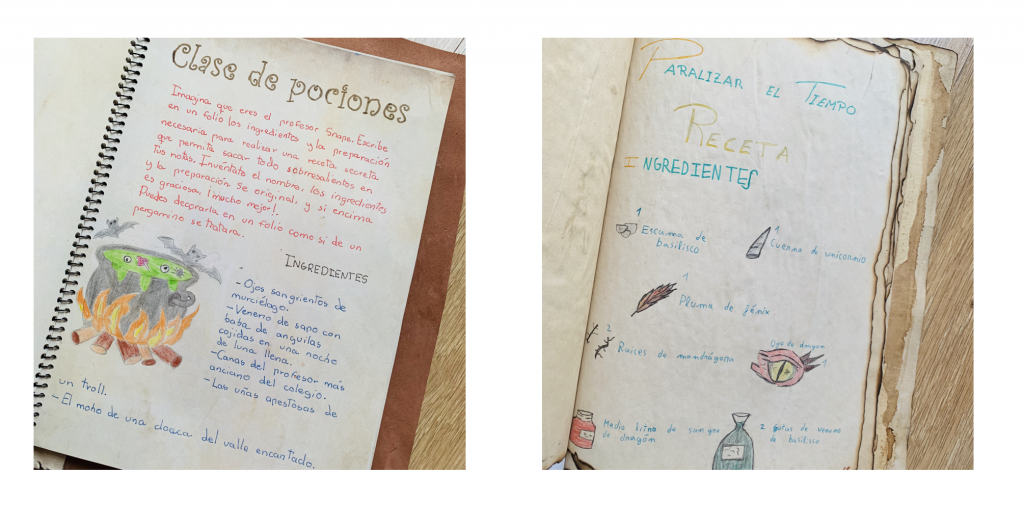 Clase de pociones
Imagina que eres el profesor Snape. Escribe
en un folio los ingredientes y la preparación
necesaria para realizar una receta secreta
que permita sacar todo sobresalientes en
tus notas. Invéntate el nombre, los ingredientes
y la preparación. Se original, y si encima
es graciosa, ¡mucho mejor!.
Puedes decorarla en un folio como si de un
pergamino se tratara.
INGREDIENTES
- Ojos sangrientos de
murciélago.
- Veneno de sapo con
baba de anguilas
cojidas en una noche
de luna llena.
- Canas del profesor más
anciano del colegio.
- Las uñas apestosas de
un troll.
- El moho de una cloaca del valle encantado.
PARALIZAR EL TIEMPO
RECETA
INGREDIENTES
1
Escama de
basilisco
1
Cuerno de unicornio
1
Pluma de fénix
2
Raices de mandrágora
Ojo de dragón
1
Medio litro de sangre
de dragón
2 gotas de veneno
de basilisco